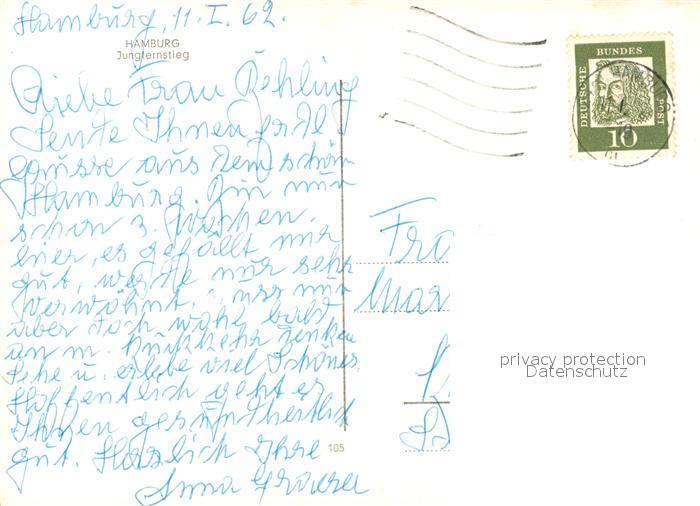 Hamburg, 11. I. 62.
HAMBURG
Jungfernstieg
Liebe Frau Oehling
Sende Ihnen frdl.
Grüsse aus dem schön
Hamburg. Bin nun
schon 3. Wochen.
hier, es gefällt mir
gut, werde nur sehr
verwöhnt. muss nun
aber doch wohl bald
an m. Rückkehr denken
Sehe u. erlebe viel Schönes.
Hoffentlich geht es
Ihnen gesundheitlich
gut. Herzlich Ihre
Anna
105
DEUTSCHE BUNDESPOST
10
HAMBURG
Fra
Mar
privacy protection
Datenschutz